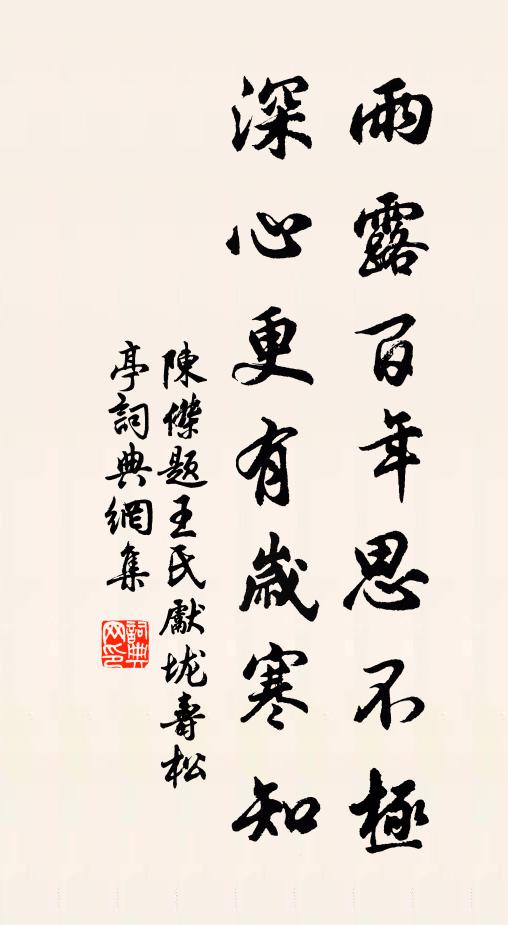 雨露百年思不極
深心更有歲寒知
陳傑題王氏獻垅壽松
亭詞典網集
詞典
网印